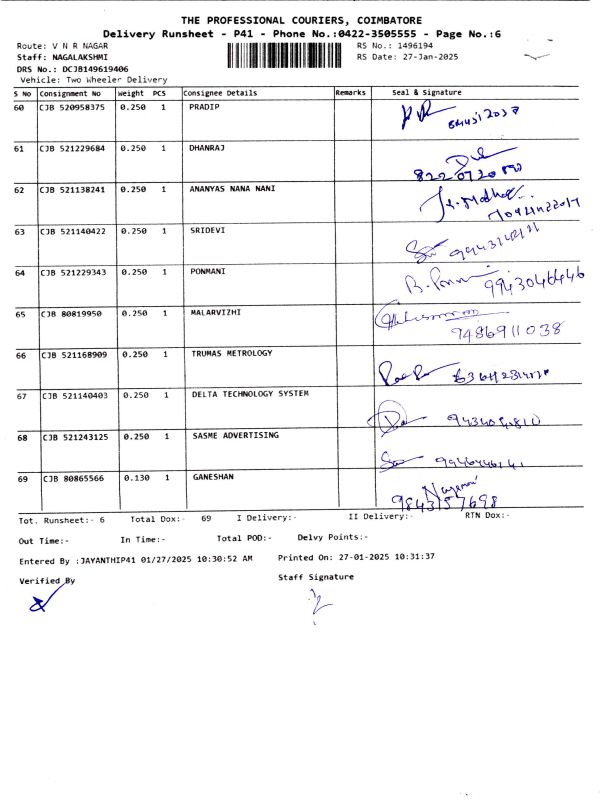 THE PROFESSIONAL COURIERS, COIMBATORE
Delivery Runsheet - P41 - Phone No.:0422-3505555 - Page No.:6
Route: V N R NAGAR RS No.: 1496194
Staff: NAGALAKSHMI RS Date: 27-Jan-2025
DRS No.: DCJB149619406
Vehicle: Two Wheeler Delivery
S No Consignment No Weight PCS Consignee Details Remarks Seal & Signature
60 CJB 520958375 0.250 1 PRADIP
61 CJB 521229684 0.250 1 DHANRAJ
62 CJB 521138241 0.250 1 ANANYAS NANA NANI
63 CJB 521140422 0.250 1 SRIDEVI
64 CJB 521229343 0.250 1 PONMANI 9943046446
65 CJB 80819950 0.250 1 MALARVIZHI 9486911038
66 CJB 521168909 0.250 1 TRUMAS METROLOGY
67 CJB 521140403 0.250 1 DELTA TECHNOLOGY SYSTEM
68 CJB 521243125 0.250 1 SASME ADVERTISING
69 CJB 80865566 0.130 1 GANESHAN 9843157698
Tot. Runsheet:- 6 Total Dox:- 69 I Delivery:- II Delivery:- RTN Dox:-
Out Time:- In Time:- Total POD:- Delvy Points:-
Entered By :JAYANTHIP41 01/27/2025 10:30:52 AM Printed On: 27-01-2025 10:31:37
Verified By Staff Signature